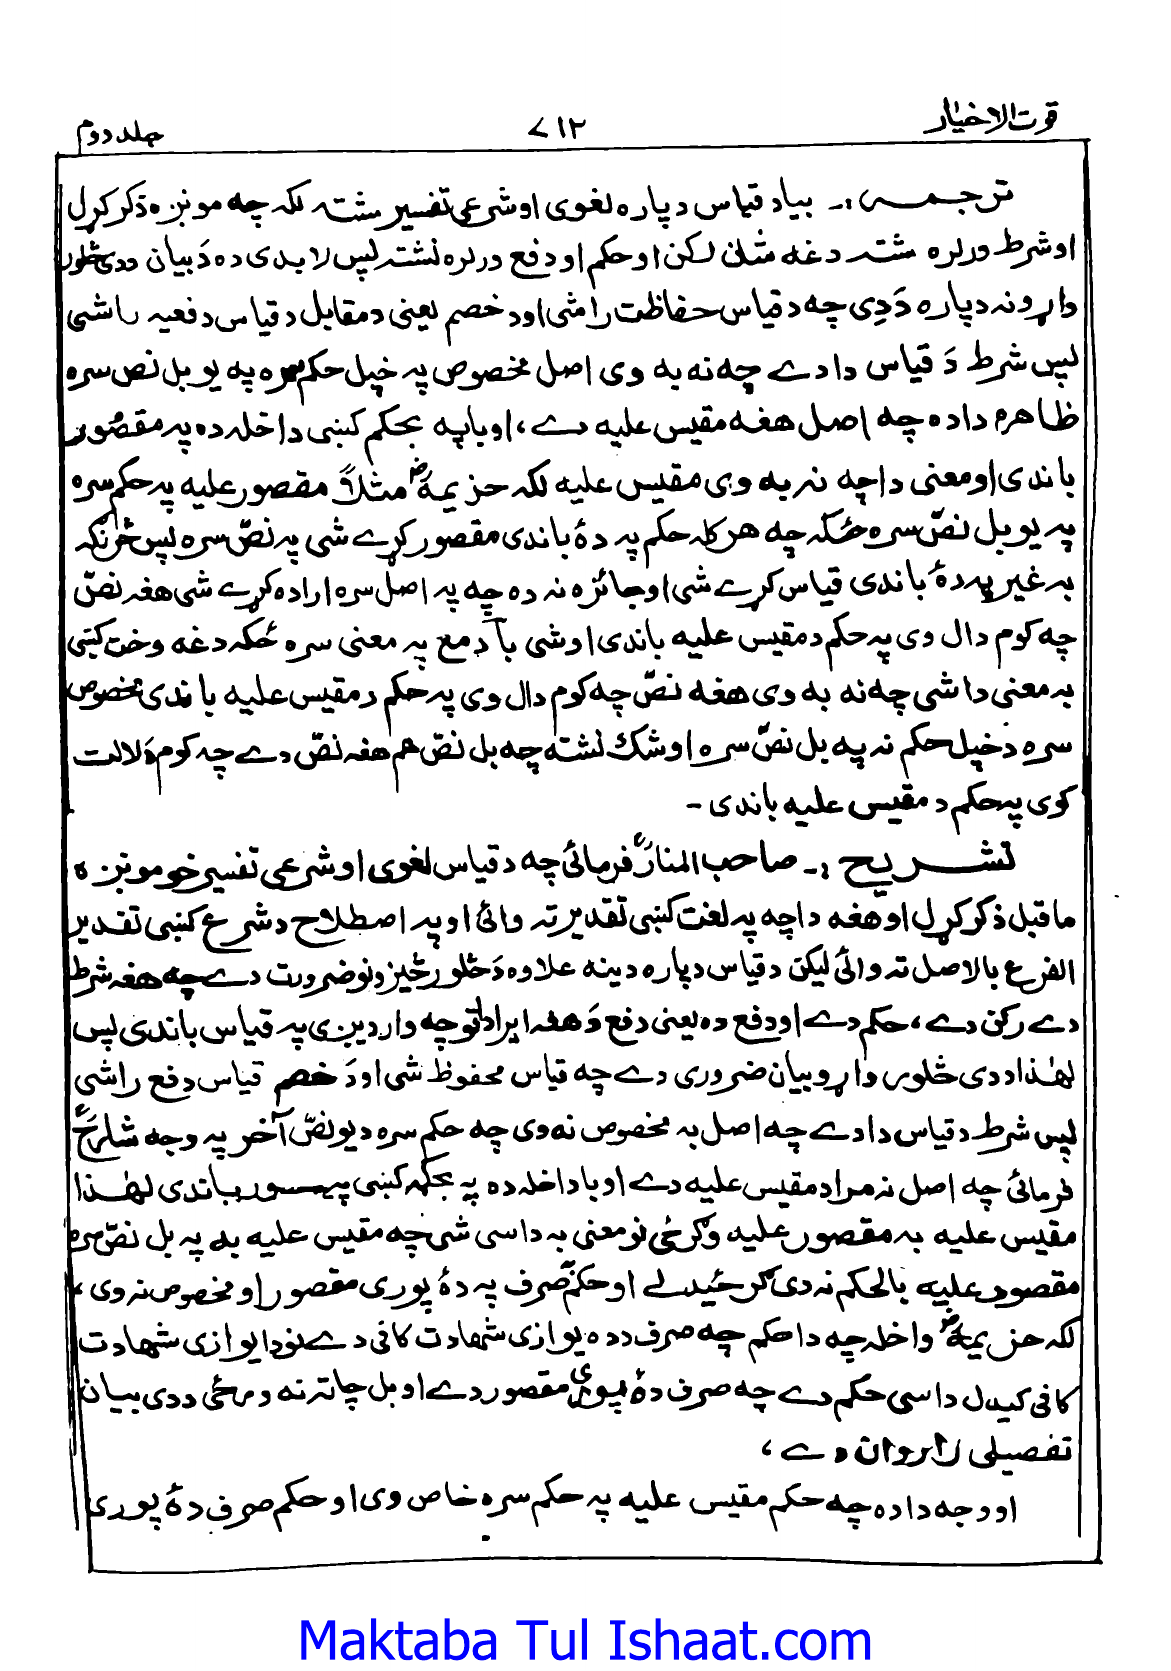 قوت الاخیار
۷۱۲
جلد دوم
ترجمہ :۔ بیا د قیاس دپاره لغوی او شرعی تفسیر شته لکه چه مونږه ذکر کړل
او شرط ورلره شته دغه شان رکن او حکم او دفع ورلره نشته لپس لابدی ده دَ بیان ددی څلور
داړونه دپاره دَدِی چه د قیاس حفاظت راشی او د خصم یعنی د مقابل د قیاس دفعیه راشی
لپس شرط دَ قیاس دا دے چه نه به وی اصل مخصوص په خپل حکم سره په یو بل نص سره
ظاهره داده چه اصل هغه مقیس علیه دے، او با په بحکم کښی داخله ده په مقصُور
باندی او معنی داچه نه به وی مقیس علیه لکه حزیمهؓ مثلاً مقصور علیه په حکم سره
په یو بل نصّ سره ځکه چه هر کله حکم په دهٔ باندی مقصور کړے شی په نصّ سره لپس څرنګه
به غیر په دهٔ باندی قیاس کړے شی او جائزه نه ده چه په اصل سره اراده کړے شی هغه نصّ
چه کوم دال وی په حکم د مقیس علیه باندی او شی بآ د مع په معنی سره ځکه دغه وخت کښی
به معنی دا شی چه نه به وی هغه نصّ چه کوم دال وی په حکم د مقیس علیه باندی مخصوص
سره د خپل حکم نه په بل نصّ سره او شک نشته چه بل نصّ هم هغه نصّ دے چه کوم دَلالت
کوی په حکم د مقیس علیه باندی -
تشریح :۔ صاحب المنارؒ فرمائی چه د قیاس لغوی او شرعی تفسیر خو مونږه
ماقبل ذکر کړل او هغه داچه په لغت کښی تقدیر ته وائی او په اصطلاح د شرع کښی تقدیر
الفرع بالاصل ته وائی لیکن د قیاس دپاره دینه علاوه دَ څلور څیزونو ضرورت دے چه هغه شرط
دے رکن دے، حکم دے او دفع ده یعنی دفع دَ هغه ایرادا تو چه واردیږی په قیاس باندی لپس
لهٰذا ددی څلورو داړو بیان ضروری دے چه قیاس محفوظ شی او دَ خصم قیاس دفع راشی
لپس شرط د قیاس دا دے چه اصل به مخصوص نه وی چه حکم سره د یو نصّ آخر په وجه شارحؒ
فرمائی چه اصل نه مراد مقیس علیه دے او با داخله ده په بحکمه کښی په مقصور باندی لهٰذا
مقیس علیه به مقصور علیه وګرځی نو معنی به داسی شی چه مقیس علیه به په بل نصّ سره
مقصور علیه بالحکم نه دی ګرځیدلے او حکم صرف په دهٔ پوری مقصور او مخصوص نه وی،
لکه حزیمهؓ واخله چه دا حکم چه صرف دده یوازی شهادت کافی دے نو دا یوازی شهادت
کافی کیدل داسی حکم دے چه صرف دهٔ پوری مقصور دے او بل چاته نه ومځی ددی بیان
تفصیلی راروان دے،
او وجه داده چه حکم مقیس علیه په حکم سره خاص وی او حکم صرف دهٔ پوری
Maktaba Tul Ishaat.com